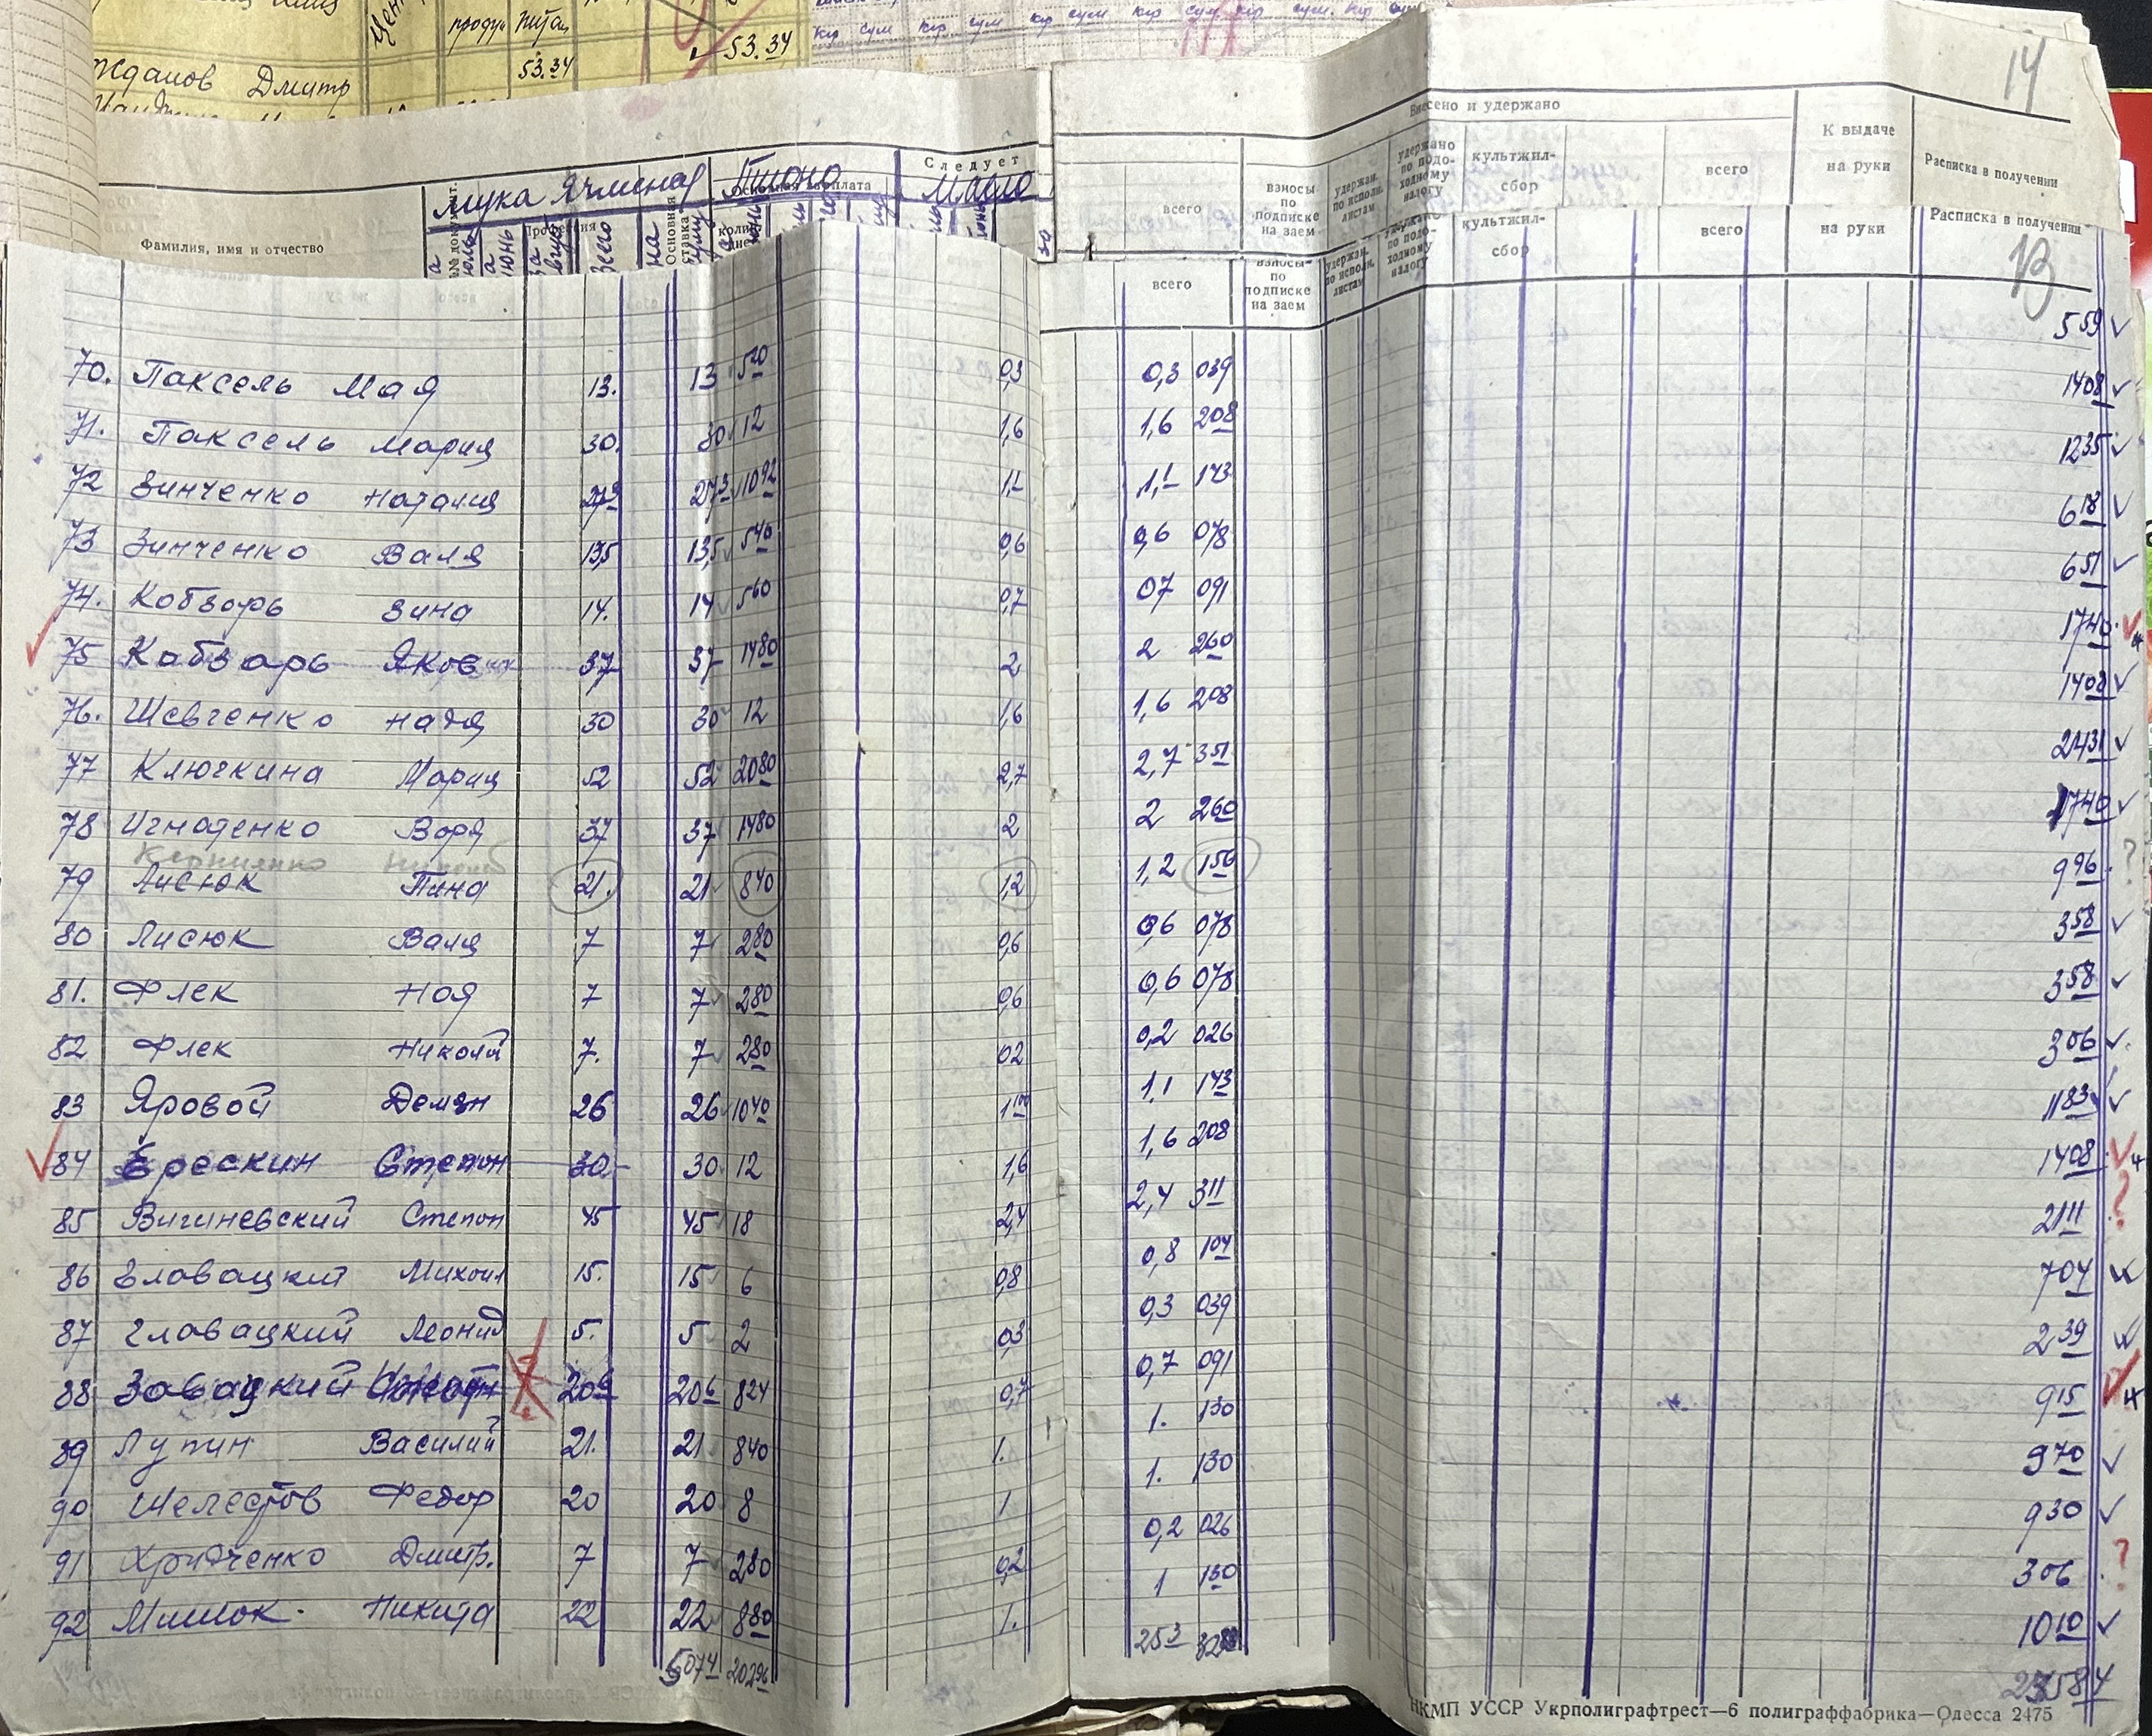 53.34
53.34
Жданов Дмитр
кор сум кор сум кор сум кор сум
14
Внесено и удержано
Следует
Мука Ячменная Пшоно Масло
Основная зарплата
Фамилия, имя и отчество
Профессия
всего
всего взносы по подписке на заем удержан. по исполн. листам удержано по подоходному налогу культжилсбор всего К выдаче на руки Расписка в получении
всего взносы по подписке на заем удержан. по исполн. листам удержано по подоходному налогу культжилсбор всего на руки Расписка в получении
13
70. Паксель Мая 13. 13 520 0,3 0,3 039 559
71. Паксель Мария 30. 30 12 1,6 1,6 208 1408
72 Зинченко Наталия 273 273 1092 1,1 1,1 143 1235
73 Зинченко Валя 13,5 13,5 540 0,6 0,6 078 618
74. Кобзарь Зина 14. 14 560 0,7 07 091 651
75 Кабзарь Яков 37 37 1480 2 2 260 1740
76. Шевченко Надя 30 30 12 1,6 1,6 208 1408
77 Ключкина Мария 52 52 2080 2,7 2,7 351 2431
78 Игнатенко Воря 37 37 1480 2 2 260 1740
79 Лисюк Пина 21. 21 840 1,2 1,2 156 996 ?
80 Лисюк Валя 7 7 280 0,6 0,6 078 358
81. Флек Ноя 7 7 280 0,6 0,6 078 358
82 Флек Николай 7. 7 280 02 0,2 026 306
83 Яровой Демян 26 26 1040 1,1 143 1183
84 Ерескин Степан 30 30 12 1,6 1,6 208 1408
85 Вигиневский Степон 45 45 18 2,4 2,4 311 2111 ?
86 Главацкий Михоил 15. 15 6 0,8 0,8 104 704
87 Главацкий Леонид 5. 5 2 03 0,3 039 239
88 Завадкий 206 206 824 0,7 0,7 091 915
89 Лупин Василий 21. 21 840 1. 1. 130 970
90 Шелестов Федор 20 20 8 1 1. 130 930
91 Хридченко Дмитр. 7 7 280 0,2 0,2 026 306 ?
92 Мишок Никита 22 22 880 1. 1 130 1010
5074 20296 253
НКМП УССР Укрполиграфтрест—6 полиграффабрика—Одесса 2475